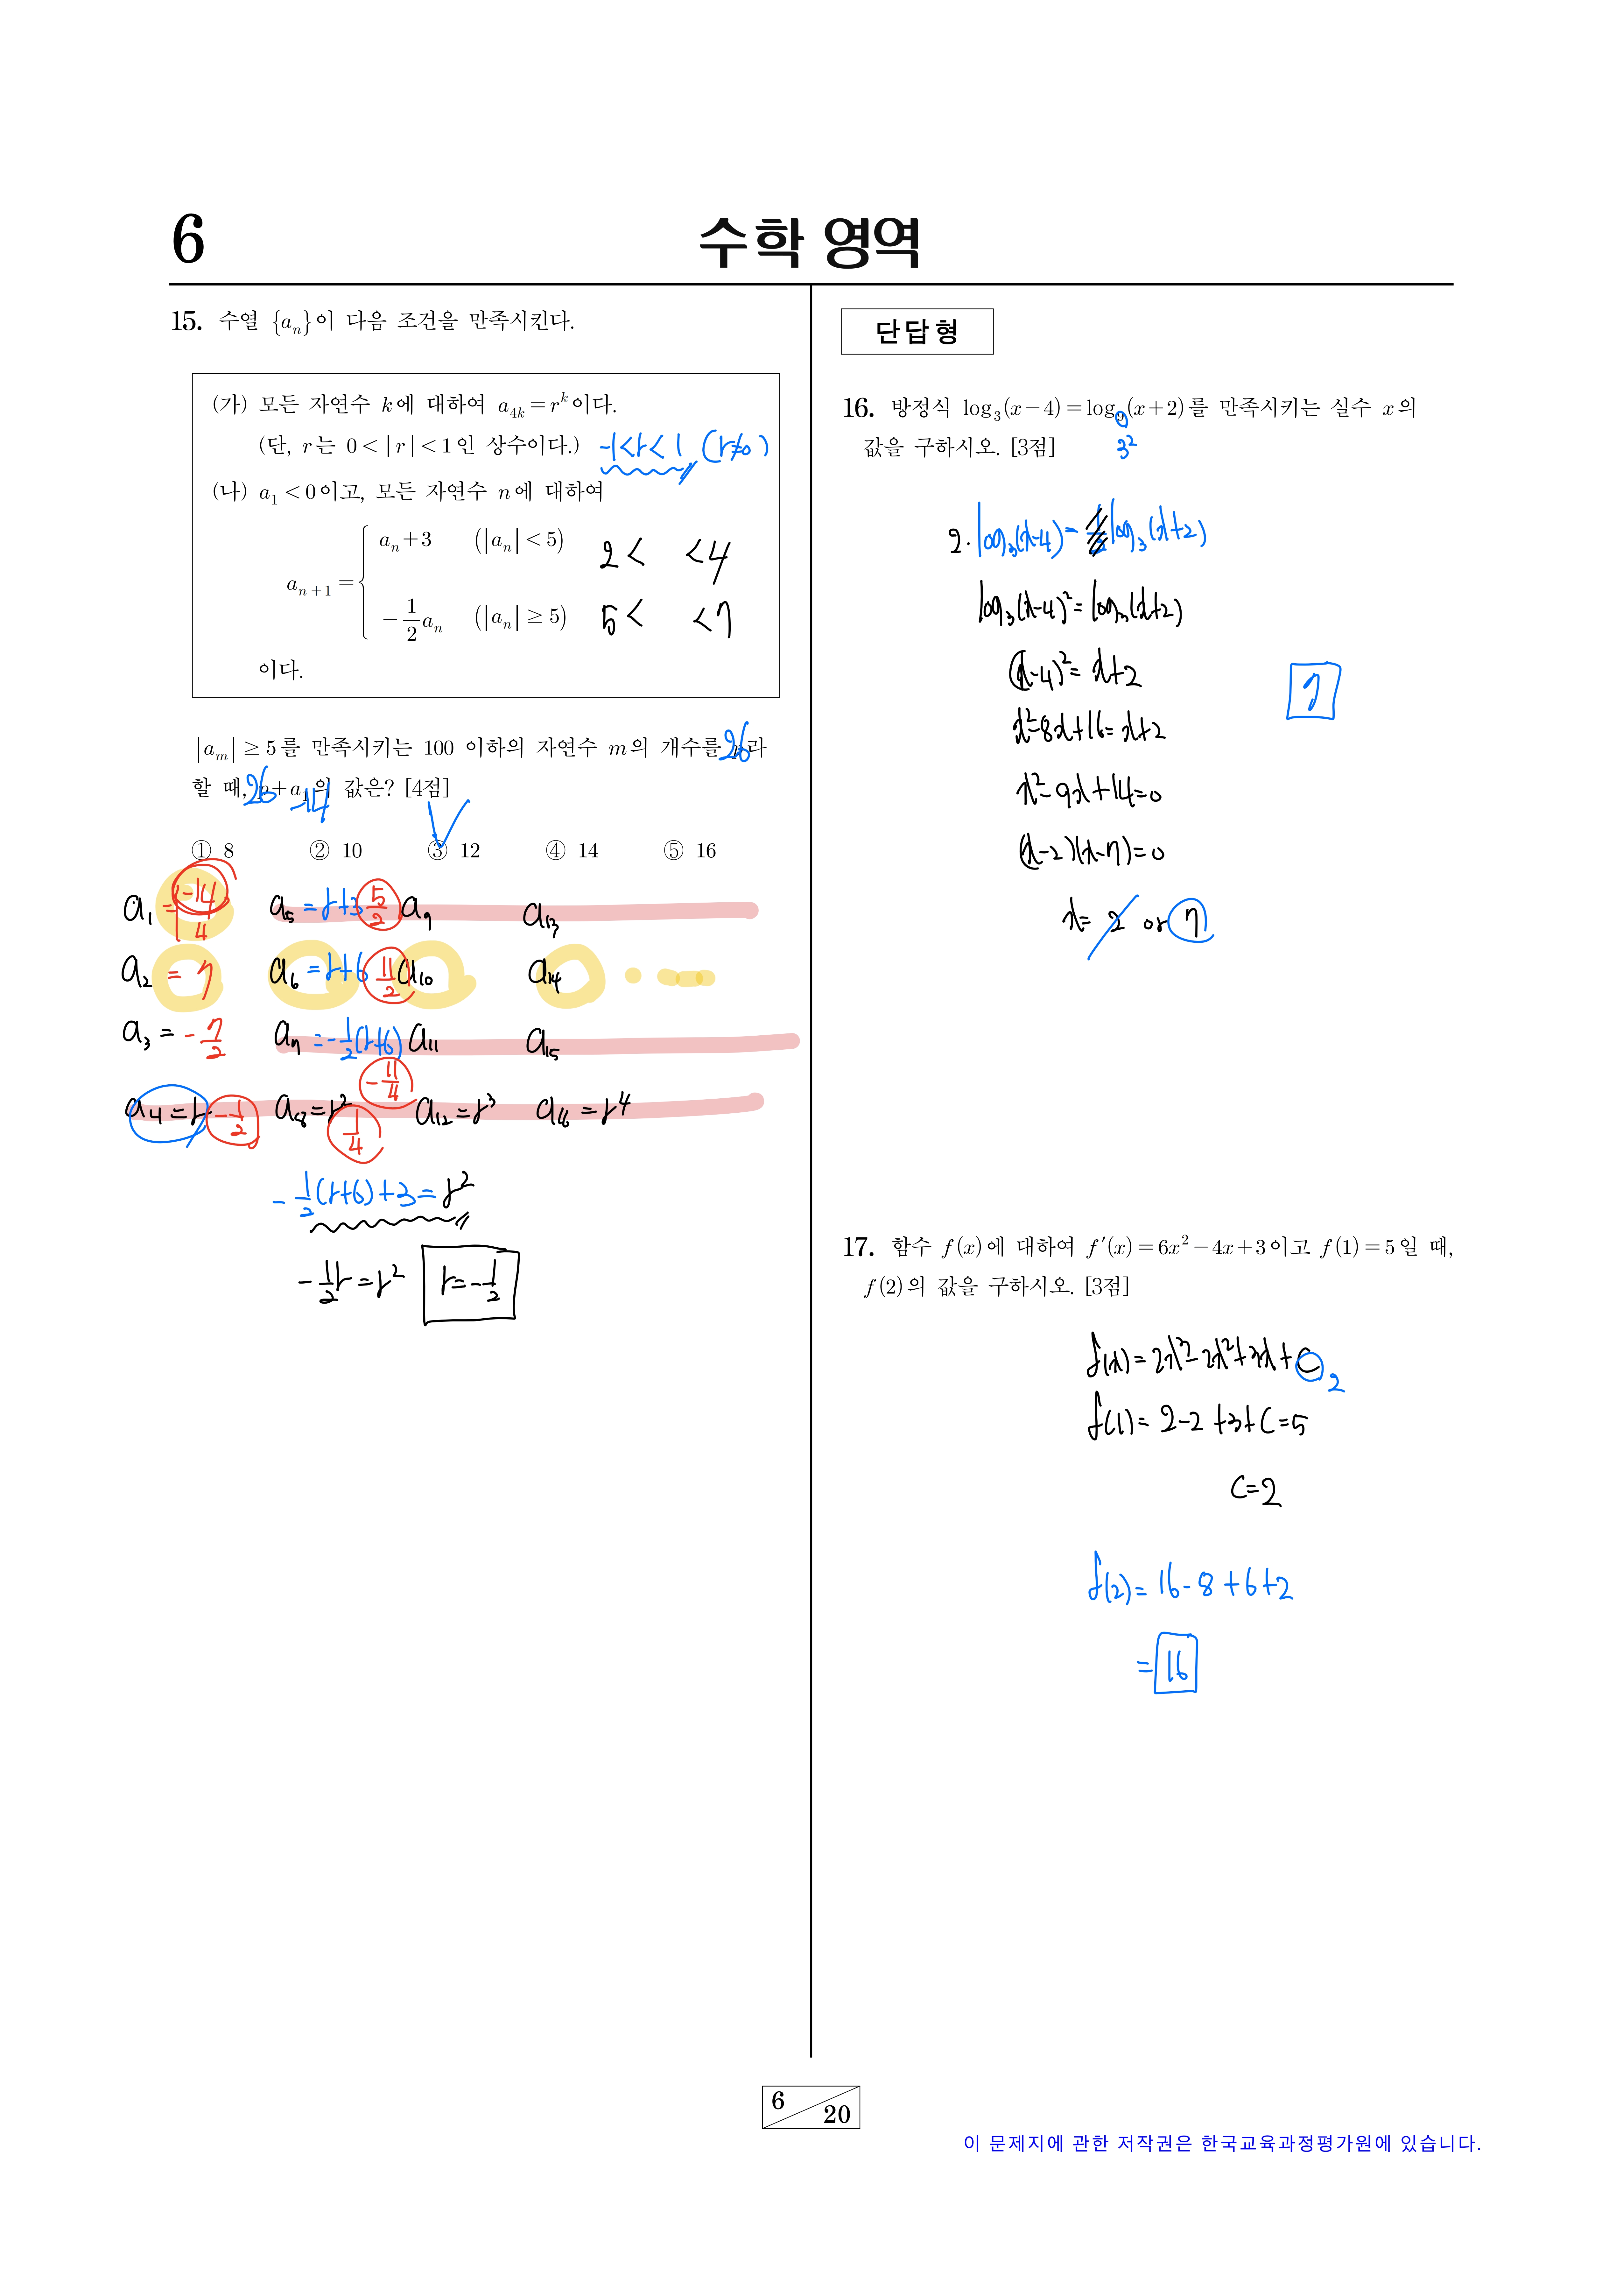 6
수학 영역
15. 수열 {aₙ}이 다음 조건을 만족시킨다.
(가) 모든 자연수 k에 대하여 a₄ₖ = rᵏ이다.
(단, r는 0 < |r| < 1인 상수이다.) -1<r<1 (r≠0)
(나) a₁ < 0이고, 모든 자연수 n에 대하여
aₙ₊₁ = { aₙ+3 (|aₙ| < 5) 2< <4
-1/2 aₙ (|aₙ| ≥ 5) 5< <7
이다.
|aₘ| ≥ 5를 만족시키는 100 이하의 자연수 m의 개수를 26라
할 때, 26 + a₁의 값은? [4점]
-14
① 8 ② 10 ③ 12 ④ 14 ⑤ 16
a₁ = -14 4 a₅ = r+3 5/2 a₉ a₁₃
a₂ = 7 a₆ = r+6 11/2 a₁₀ a₁₄
a₃ = -7/2 a₇ = -1/2(r+6) a₁₁ a₁₅
-11/4
a₄ = r -1/2 a₈ = r² 1/4 a₁₂ = r³ a₁₆ = r⁴
-1/2(r+6)+3 = r²
-1/2 r = r² r = -1/2
단답형
16. 방정식 log₃(x-4) = log₉(x+2)를 만족시키는 실수 x의
값을 구하시오. [3점] 3²
2. log₃(x-4) = 1/2 log₃(x+2)
log₃(x-4)² = log₃(x+2)
(x-4)² = x+2
7
x²-8x+16 = x+2
x²-9x+14=0
(x-2)(x-7)=0
x= 2 or 7
17. 함수 f(x)에 대하여 f′(x) = 6x²-4x+3이고 f(1) = 5일 때,
f(2)의 값을 구하시오. [3점]
f(x) = 2x³-2x²+3x+C 2
f(1) = 2-2+3+C=5
C=2
f(2) = 16-8+6+2
= 16
6 20
이 문제지에 관한 저작권은 한국교육과정평가원에 있습니다.